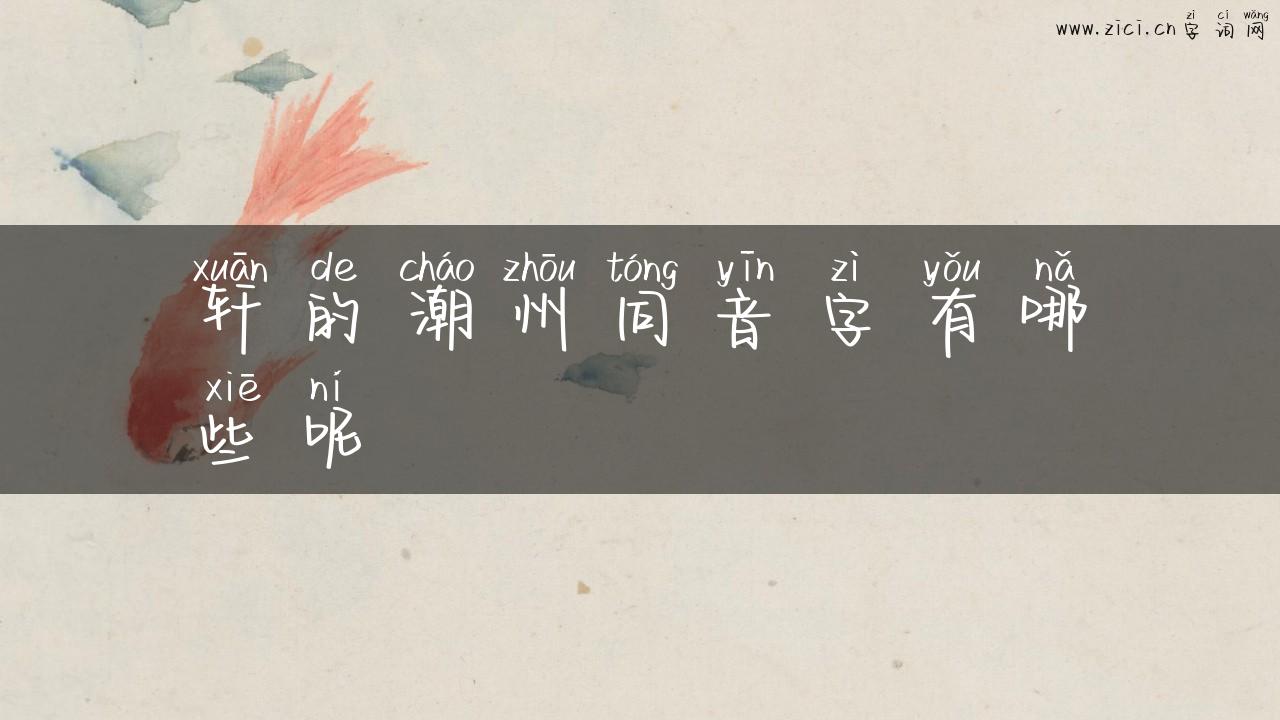 zì cí wǎng
www.zici.cn 字词网
xuān de cháo zhōu tóng yīn zì yǒu nǎ
轩的潮州同音字有哪
xiē ní
些呢